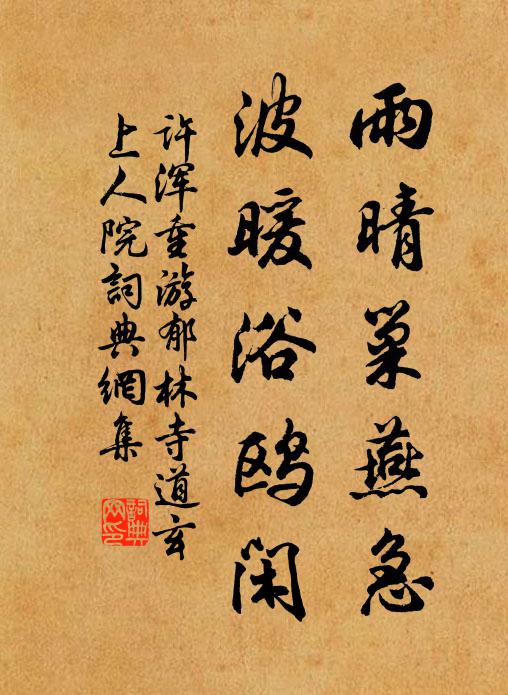 雨晴巢燕急
波暖浴鸥闲
许浑重游郁林寺道玄
上人院詞典網集
詞典網印